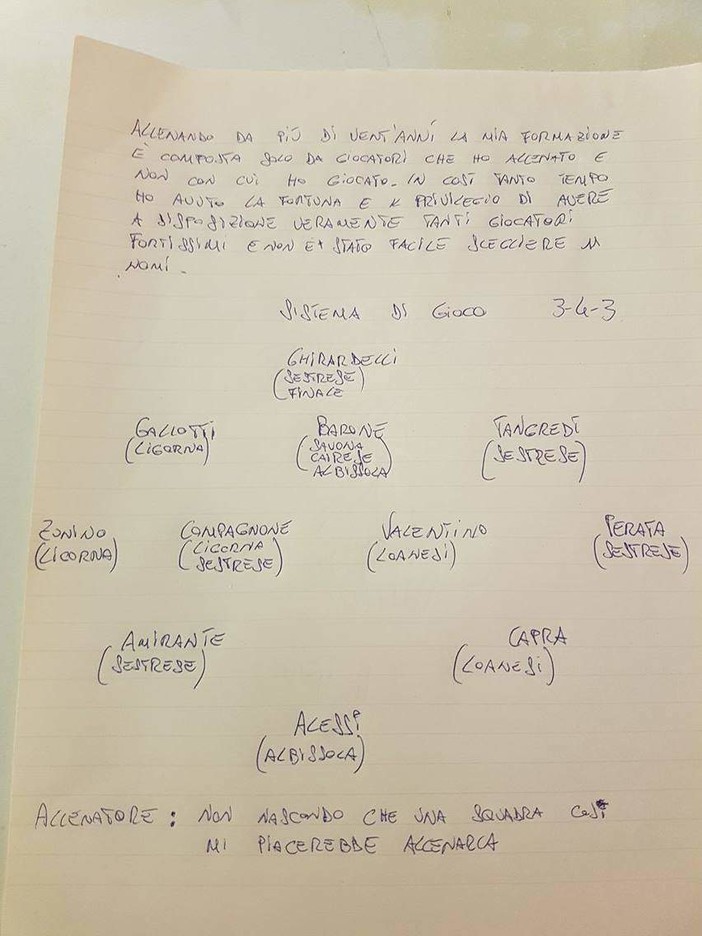 ALLENANDO DA PIÙ DI VENT'ANNI LA MIA FORMAZIONE
È COMPOSTA SOLO DA GIOCATORI CHE HO ALLENATO E
NON CON CUI HO GIOCATO. IN COSÌ TANTO TEMPO
HO AVUTO LA FORTUNA E IL PRIVILEGIO DI AVERE
A DISPOSIZIONE VERAMENTE TANTI GIOCATORI
FORTISSIMI E NON E' STATO FACILE SCEGLIERE 11
NOMI.
SISTEMA DI GIOCO 3-4-3
GHIRARDELLI
(SESTRESE)
FINALE
GALLOTTI BARONE TANGREDI
(LIGORNA) (SAVONA (SESTRESE)
CAIRESE
ALBISSOLA)
ZONINO COMPAGNONE VALENTINO PERATA
(LIGORNA) (LIGORNA (LOANESI) (SESTRESE)
SESTRESE)
AMIRANTE CAPRA
(SESTRESE) (LOANESI)
ALESSI
(ALBISSOLA)
ALLENATORE: NON NASCONDO CHE UNA SQUADRA COSÌ
MI PIACEREBBE ALLENARLA